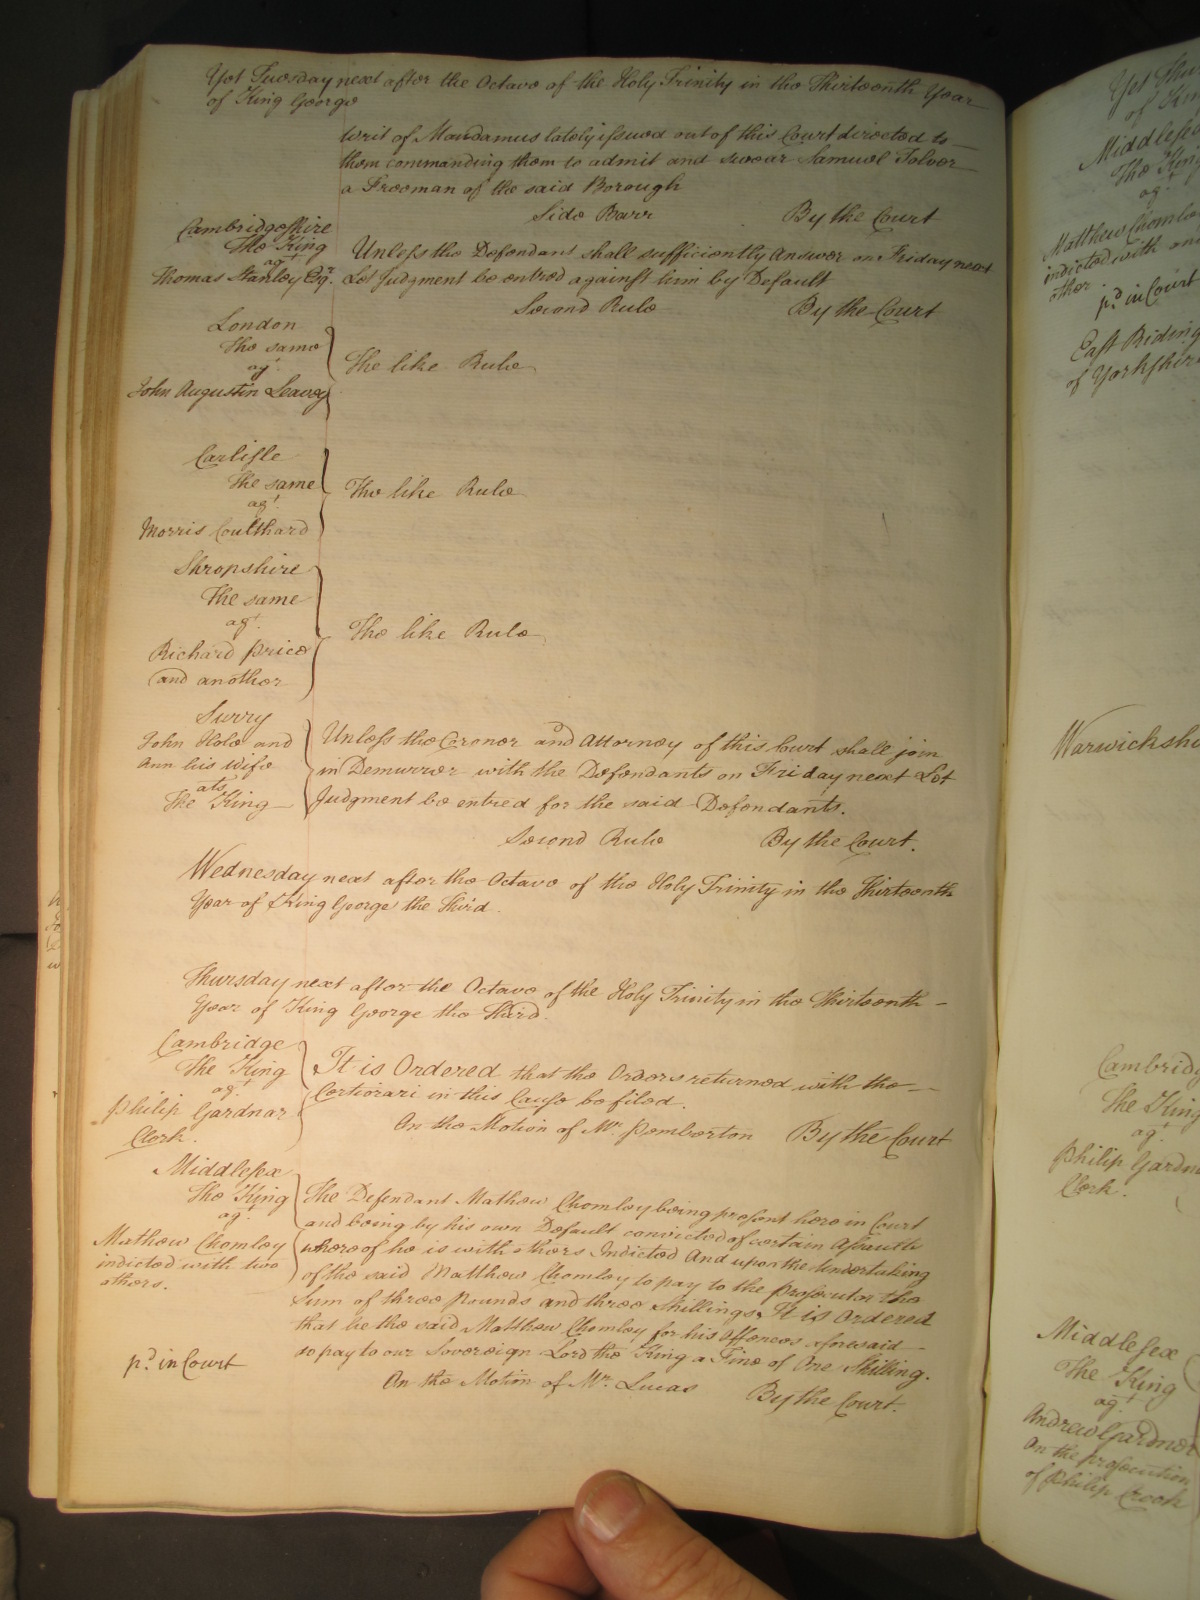 Yet Tuesday next after the Octave of the Holy Trinity in the Thirteenth Year
of King George
Writ of Mandamus lately issued out of this Court directed to
them commanding them to admit and swear Samuel Tolver
a Freeman of the said Borough
Side Barr By the Court
Cambridgeshire
The King
agt
Thomas Stanley Esqr.
Unless the Defendant shall sufficiently Answer on Friday next
Let Judgment be entred against him by Default
Second Rule By the Court
London
The same
agt
John Augustin Leavey
The like Rule
Carlisle
The same
agt
Morris Coulthard
The like Rule
Shropshire
The same
agt.
Richard Price
and another
The like Rule
Surry
John Hole and
Ann his Wife
ats
The King
Unless the Coroner and Attorney of this Court shall join
in Demurrer with the Defendants on Friday next Let
Judgment be entred for the said Defendants.
Second Rule By the Court.
Wednesday next after the Octave of the Holy Trinity in the Thirteenth
Year of King George the Third.
Thursday next after the Octave of the Holy Trinity in the Thirteenth
Year of King George the Third.
Cambridge
The King
agt
Philip Gardnar
Clerk.
It is Ordered that the Orders returned with the
Certiorari in this Cause be filed.
On the Motion of Mr. Pemberton By the Court
Middlesex
The King
agt
Mathew Chomley
indicted with two
others.
The Defendant Mathew Chomley being present here in Court
and being by his own Default convicted of certain Assaults
whereof he is with others Indicted And upon the Undertaking
of the said Matthew Chomley to pay to the Prosecutor the
Sum of three Pounds and three Shillings, It is Ordered
that he the said Matthew Chomley for his Offences aforesaid
do pay to our Sovereign Lord the King a Fine of One Shilling.
pd. in Court
On the Motion of Mr. Lucas By the Court.
Yet Thu
of Kin
Middlesex
The King
agt
Matthew Chomley
indicted with
other
pd in Court
East Riding
of Yorkshire
Warwickshi
Cambridg
The King
agt
Philip Gardn
Clerk.
Middlesex
The King
agt
Andrew Gardner
On the prosecution
of Philip Crook